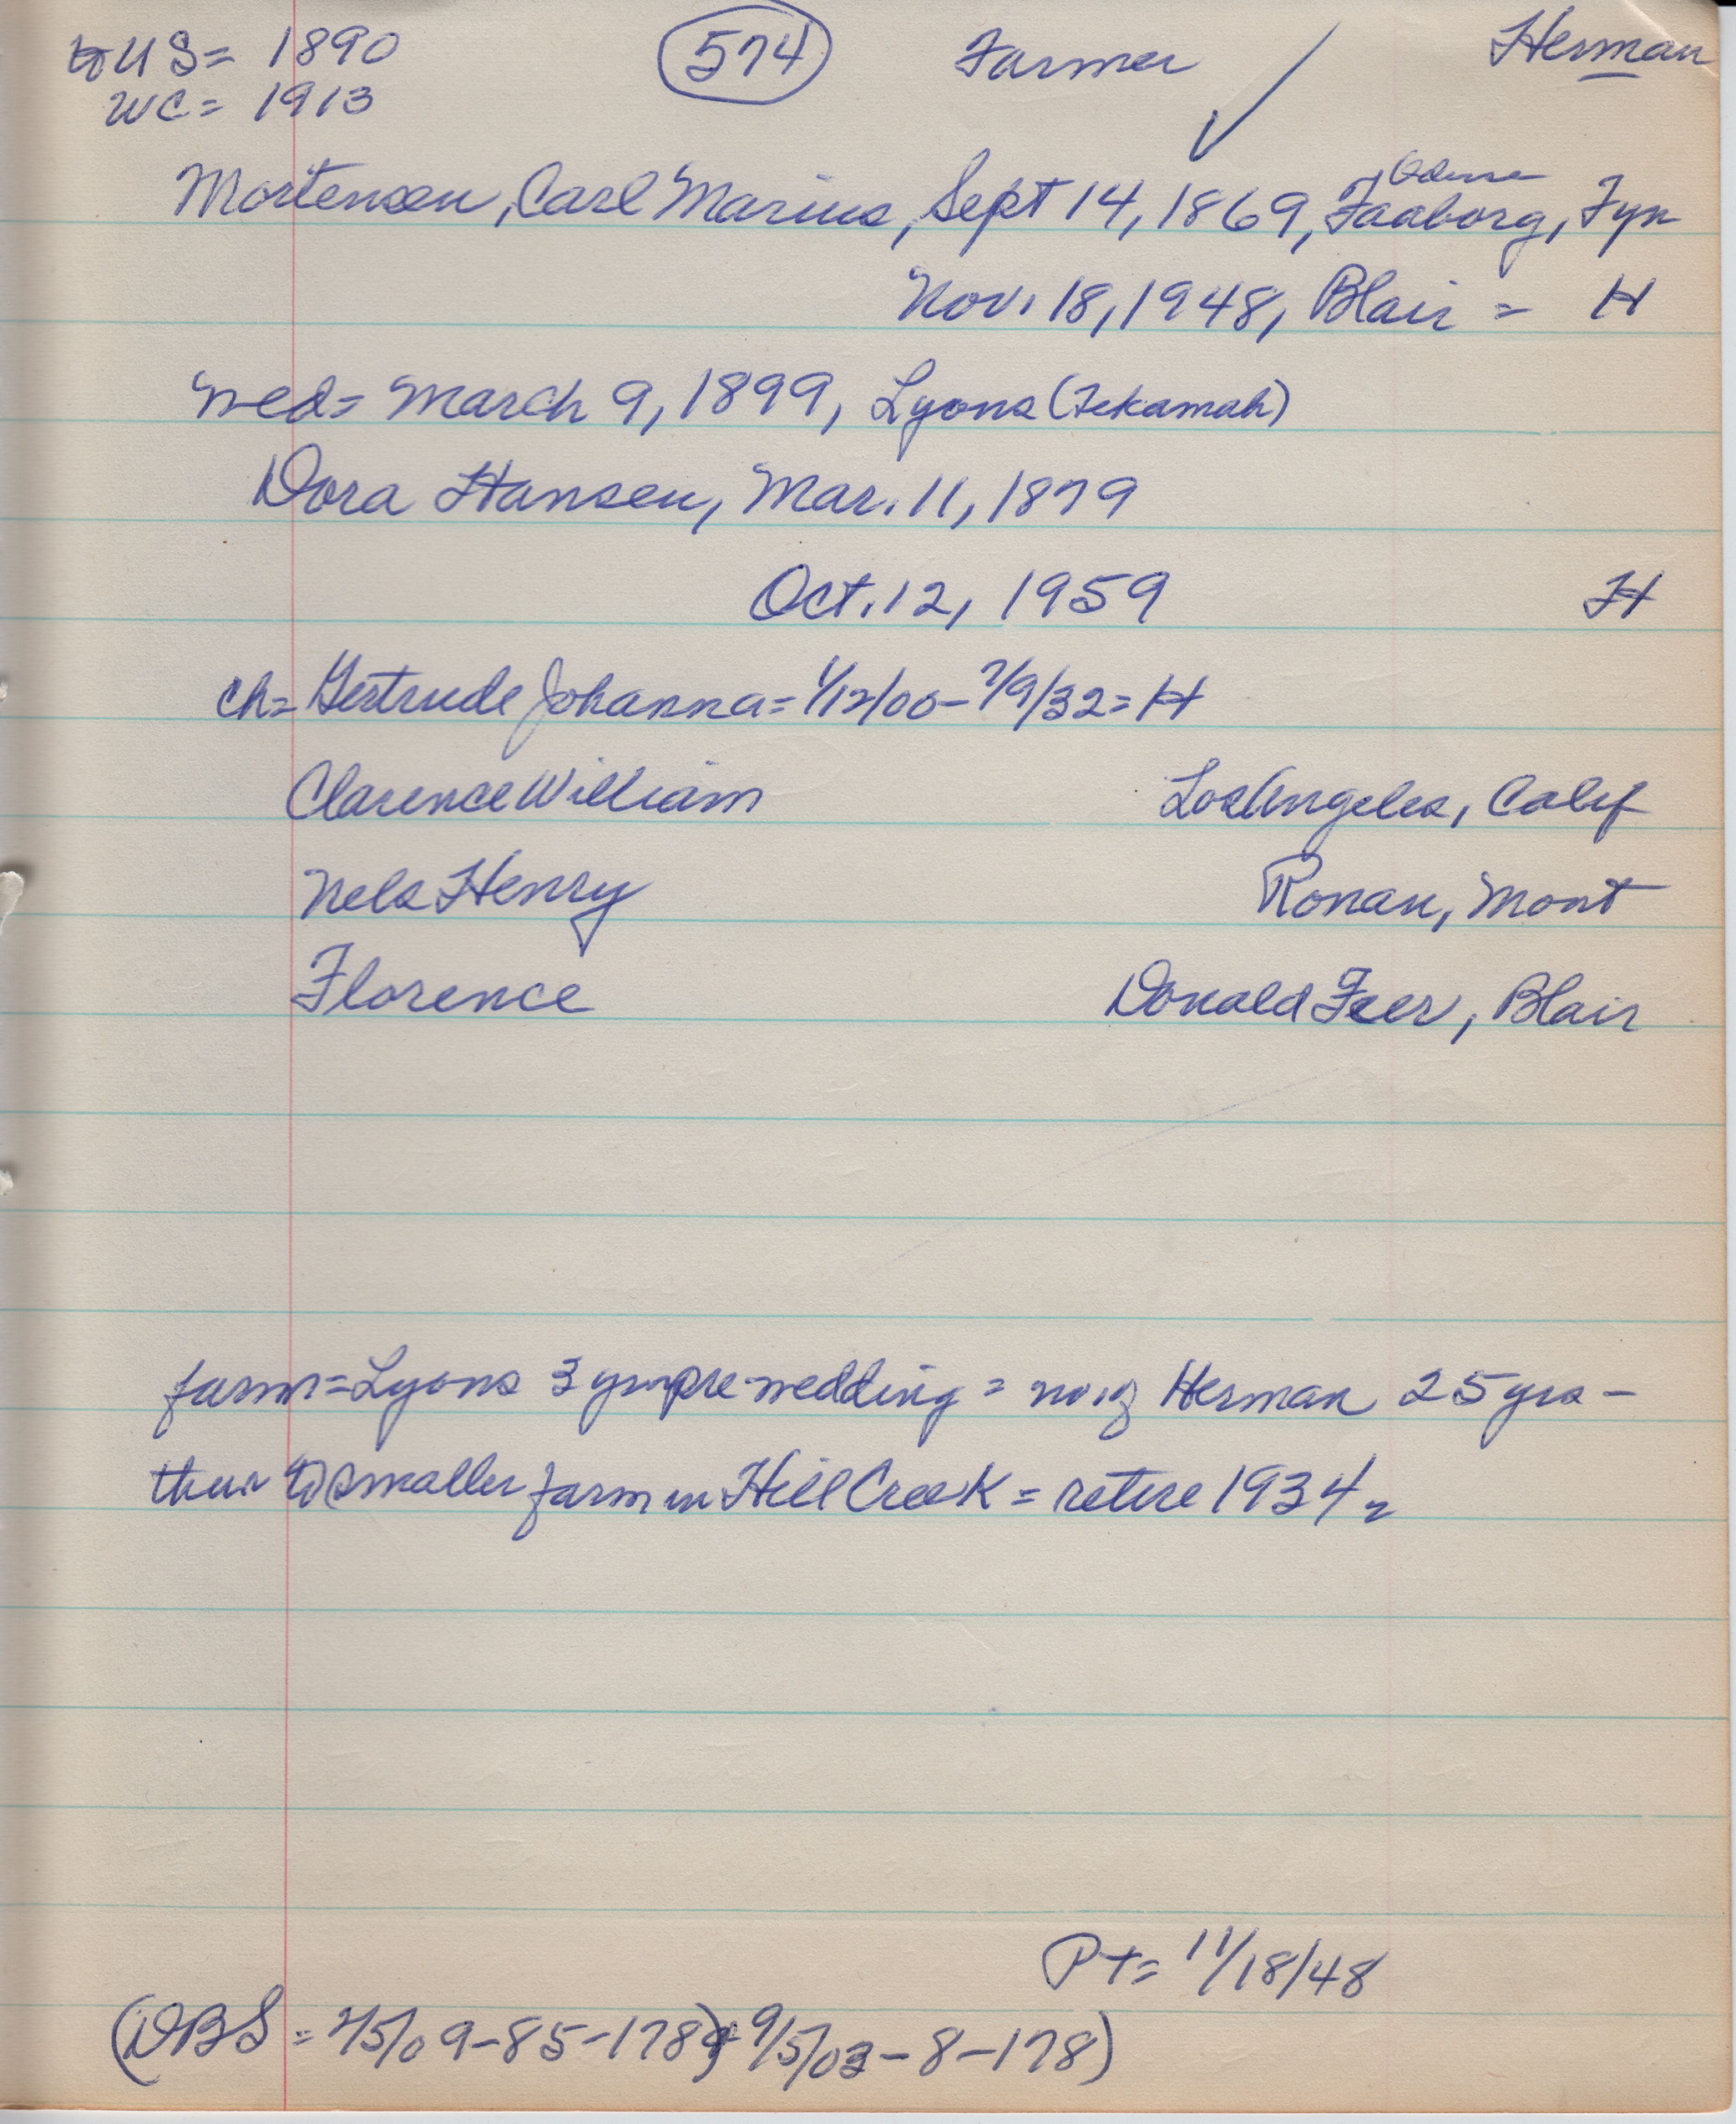 to US = 1890 574 Farmer ✓ Herman
WC = 1913
Odense
Mortensen, Carl Marius, Sept 14, 1869, Faaborg, Fyn
Nov. 18, 1948, Blair = H
wed = March 9, 1899, Lyons (Tekamah)
Dora Hansen, Mar. 11, 1879
Oct. 12, 1959 H
ch = Gertrude Johanna = 1/12/00 - 7/9/32 = H
Clarence William Los Angeles, Calif
Nels Henry Ronan, Mont
Florence Donald Feer, Blair
farm = Lyons 3 yrs pre-wedding = Herman 25 yrs -
then to smaller farm in Hill Creek = retire 1934
Pt = 11/18/48
(DBS = 7/5/09-85-178) + 9/5/03-8-178)